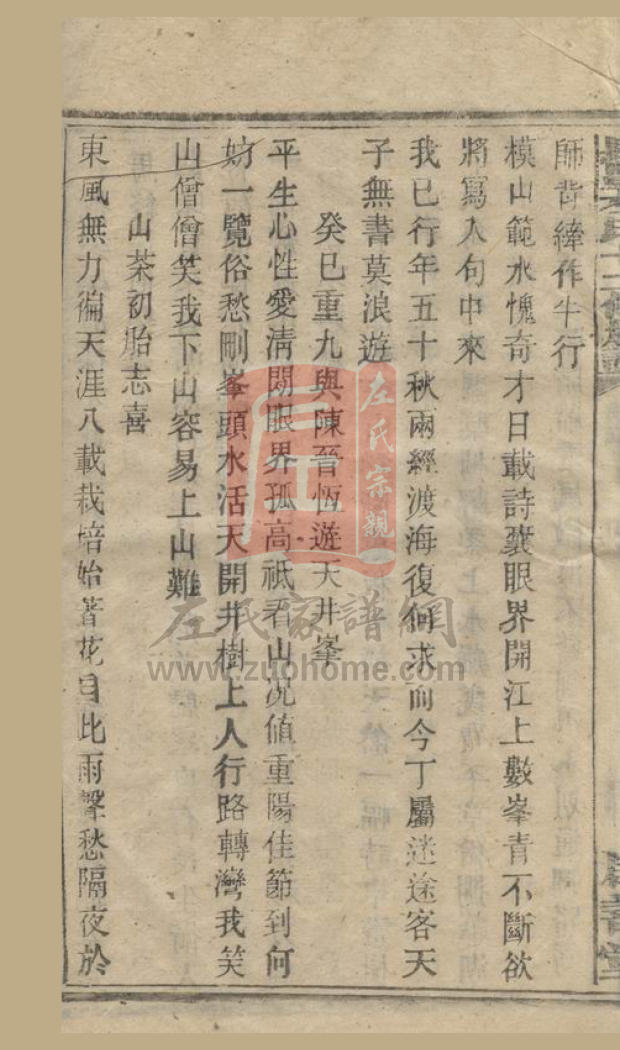 師背縴作牛行
模山範水愧奇才日載詩囊眼界開江上數峯青不斷欲
將寫入句中來
我已行年五十秋兩經渡海復何求而今丁屬迷途客天
子無書莫浪遊
癸巳重九與陳晉恆遊天井峯
平生心性愛清閒眼界孤高祇看山况值重陽佳節到何
妨一覽俗愁刪峯頭水活天開井樹上人行路轉灣我笑
山僧僧笑我下山容易上山難
山茶初胎志喜
東風無力徧天涯八載栽培始著花目比雨聲愁隔夜於
左氏宗親
左氏家譜網
www.zuohome.com